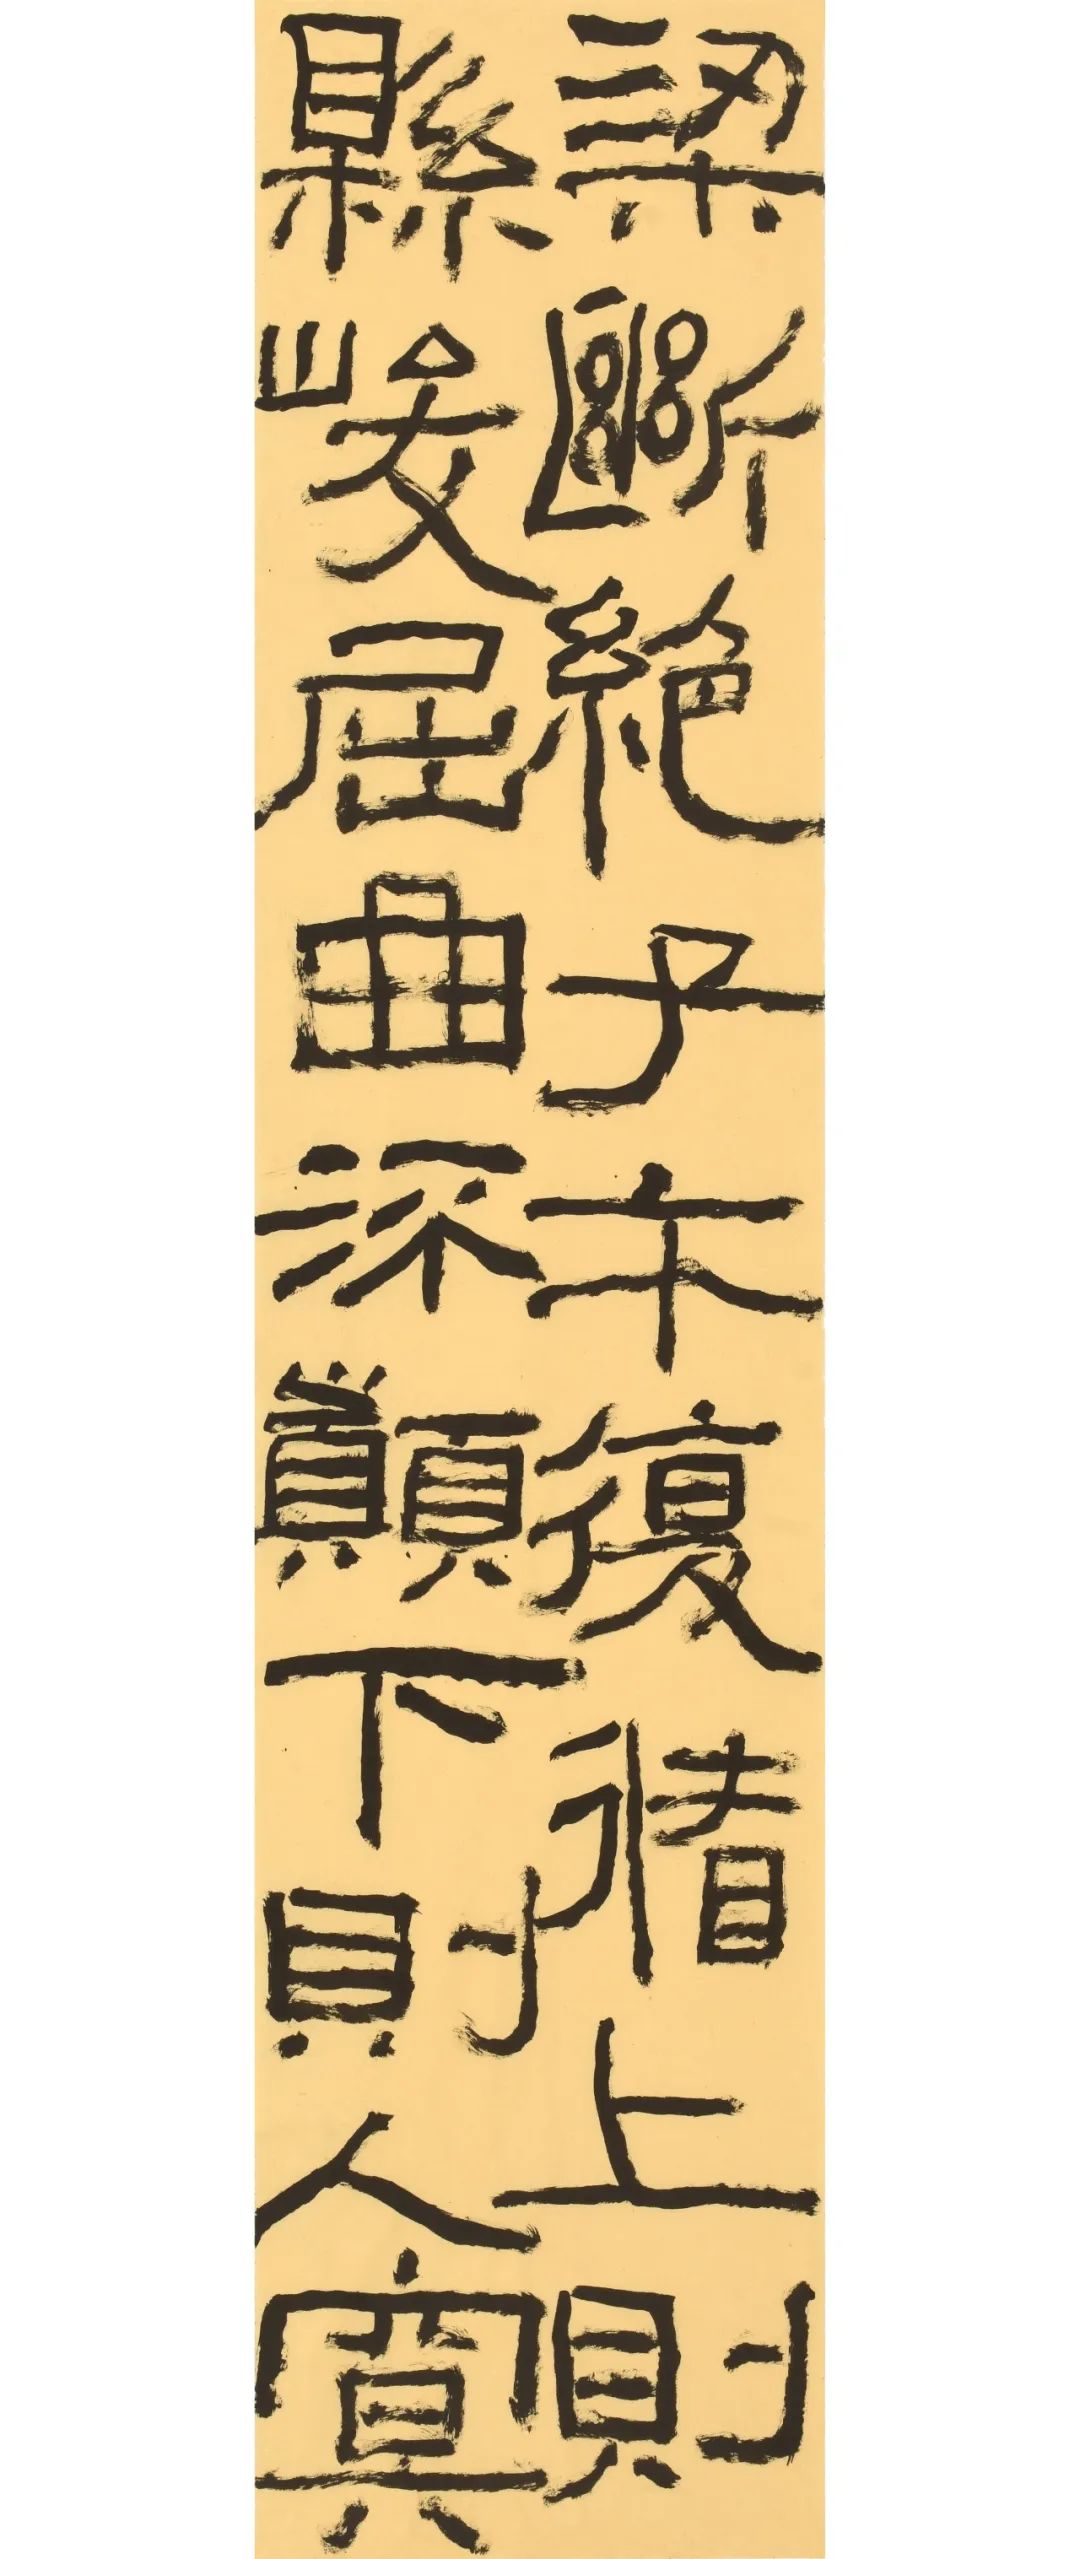 梁斷絕子午復循上則
縣峻屈曲流顛下則入冥